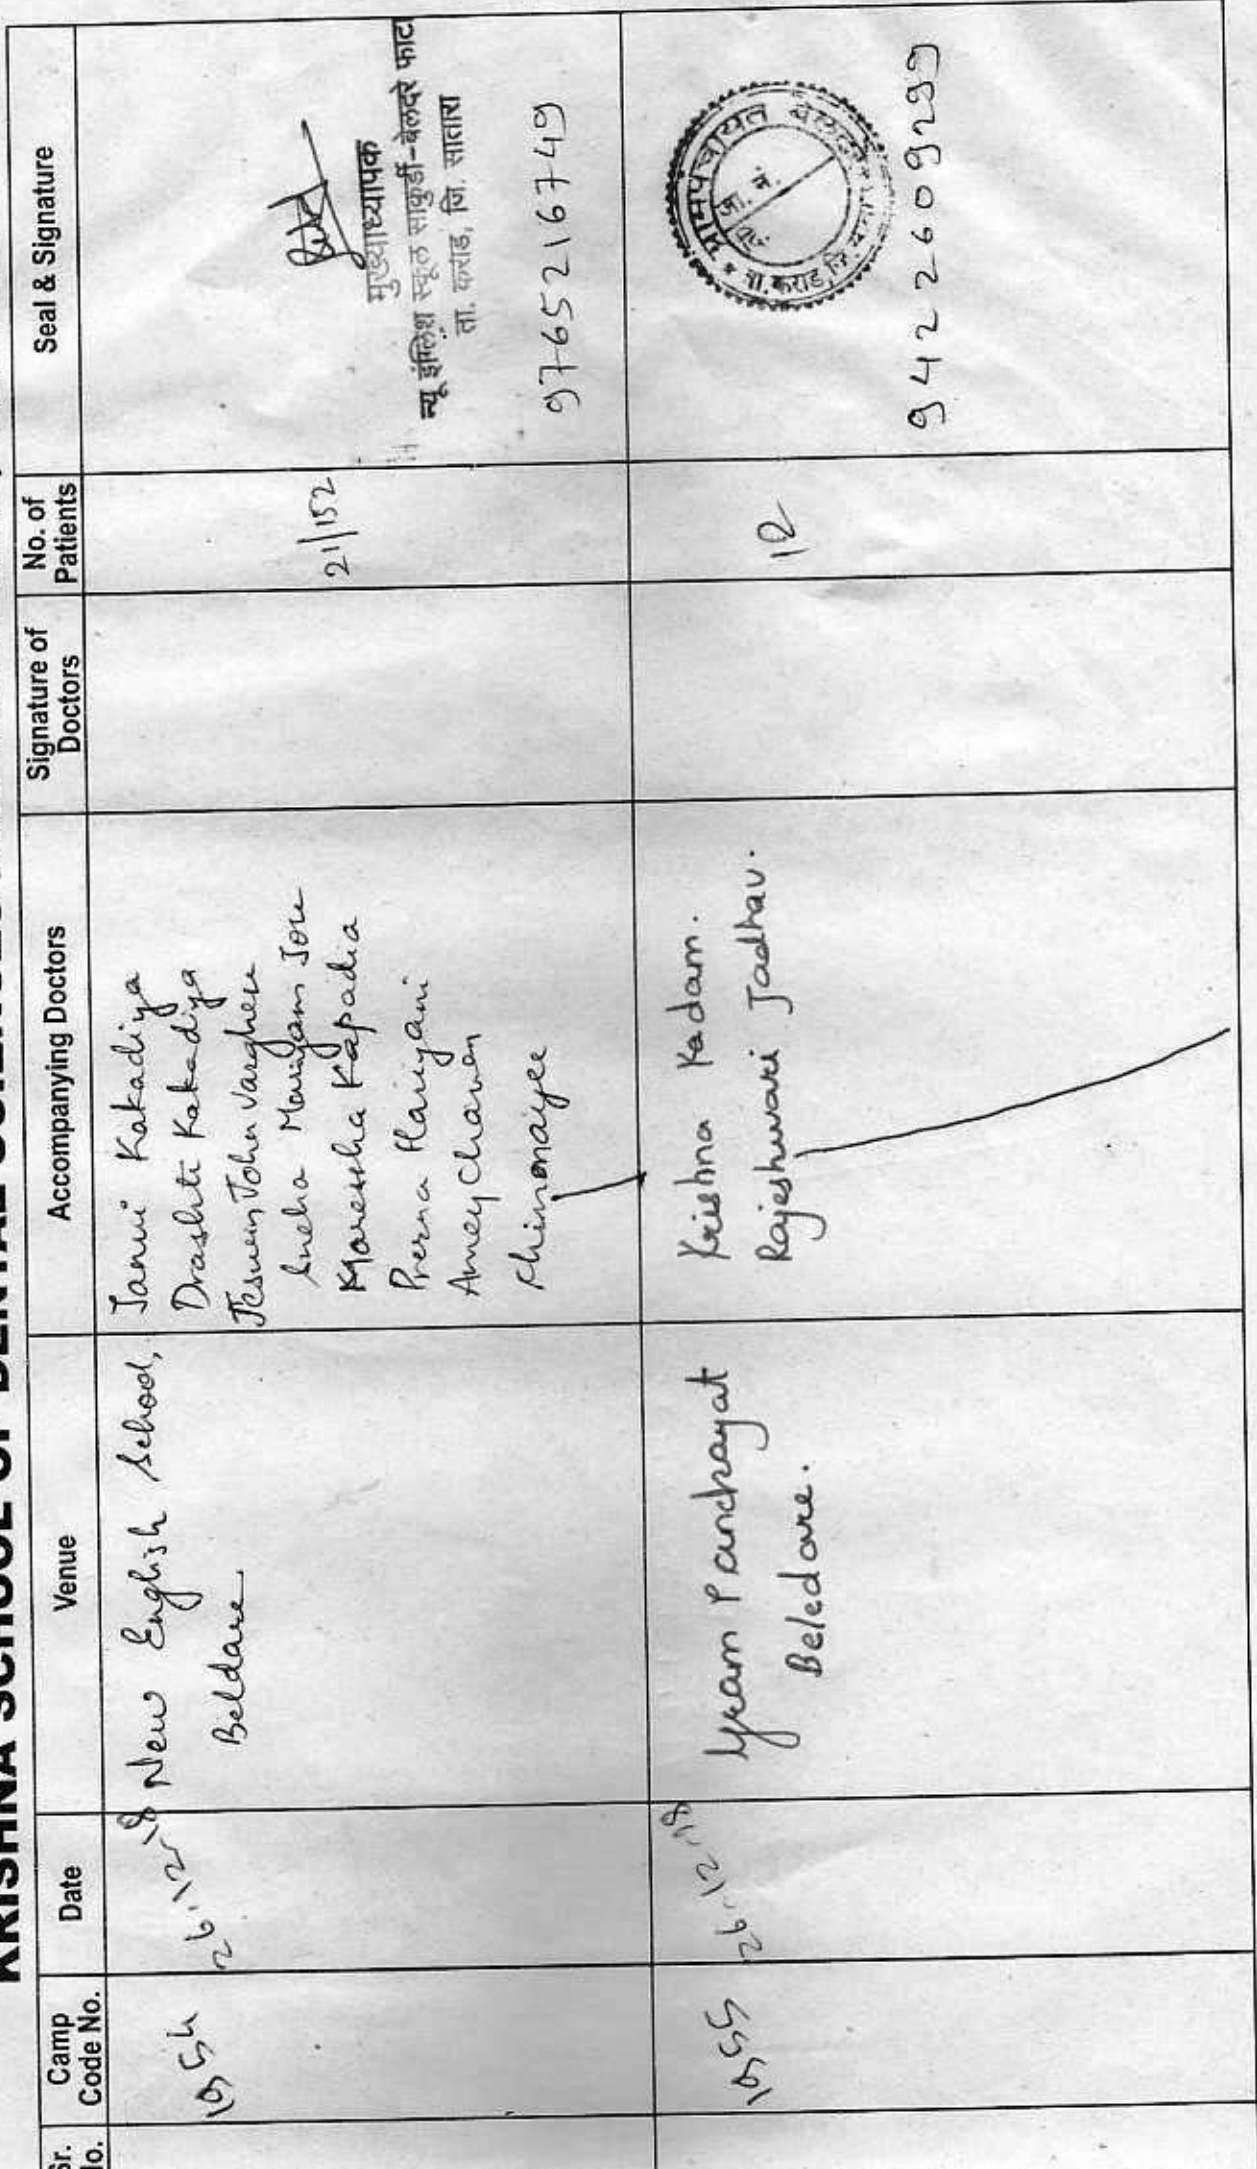 KRISHNA SCHOOL OF DENTAL SCIENCES
Sr. No.
Camp Code No.
Date
Venue
Accompanying Doctors
Signature of Doctors
No. of Patients
Seal & Signature
1054
26.12.18
New English School,
Beldare
Janvi Kakadiya
Drashti Kakadiya
Jeswin John Varghese
Sneha Mariyam Jose
Karessha Kapadia
Prerna Hariyani
Amey Chavan
Chinmayee
21/152
मुख्याध्यापक
न्यू इंग्लिश स्कूल साकुर्डी-बेलदरे फाटा
ता. कराड, जि. सातारा
9765216749
1055
26.12.18
Gram Panchayat
Beledare.
Krishna Kadam.
Rajeshwari Jadhav.
12
ग्रामपंचायत बेलदरे
जा. नं.
ता. कराड, जि.
9422609299